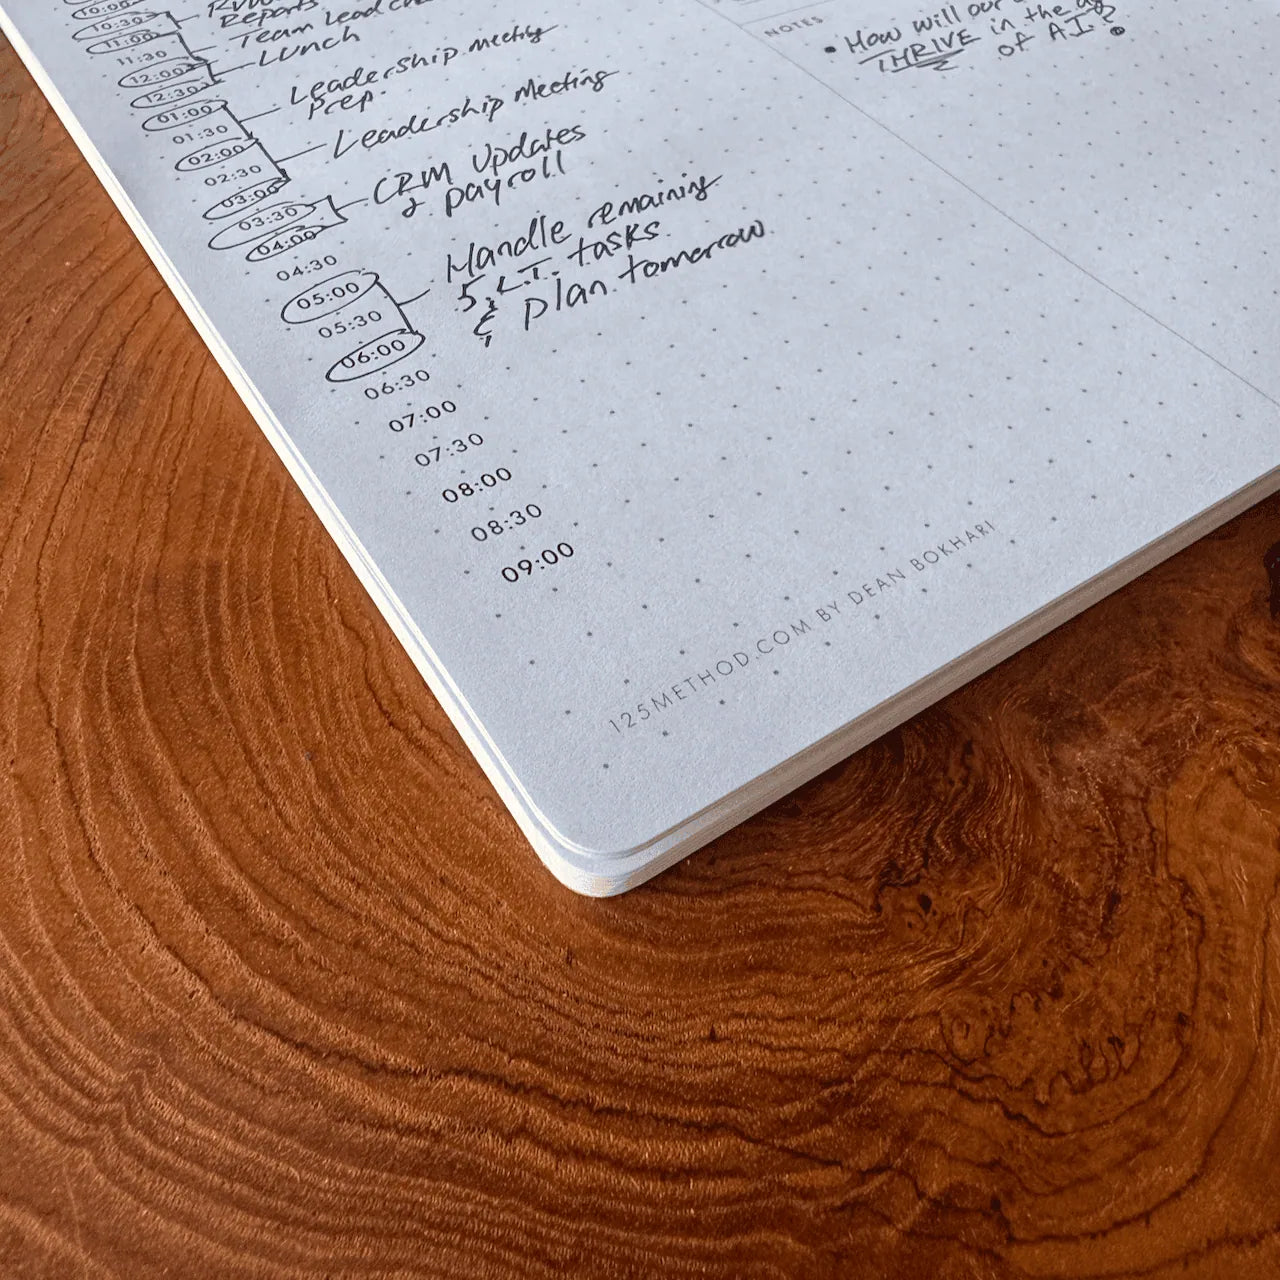 10:00
10:30
Reports
11:00
Team Lead
11:30
12:00
Lunch
12:30
01:00
Leadership meeting
prep.
01:30
02:00
Leadership Meeting
02:30
03:00
03:30
CRM Updates
& payroll
04:00
04:30
05:00
Handle remaining
S.L.T. tasks
& plan tomorrow.
05:30
06:00
06:30
07:00
07:30
08:00
08:30
09:00
NOTES
• How will our
THRIVE in the
of AI?
125METHOD.COM BY DEAN BOKHARI